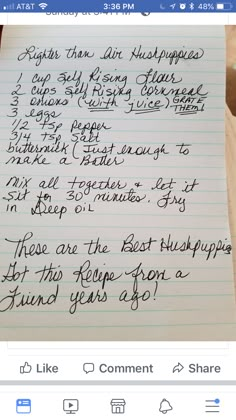 AT&T 3:36 PM 48%
Sunday at 8:41 PM
Lighter than Air Huskpuppies
1 cup Self Rising Flour
2 cups Self Rising Cornmeal
3 onions (with juice) GRATE THEM!
3 eggs
1/2 tsp pepper
3/4 tsp Salt
buttermilk (Just enough to
make a Batter
Mix all together & let it
sit for 30 minutes. Fry
in Deep oil
These are the Best Hushpuppies
Got this Recipe from a
Friend years ago!
Like Comment Share